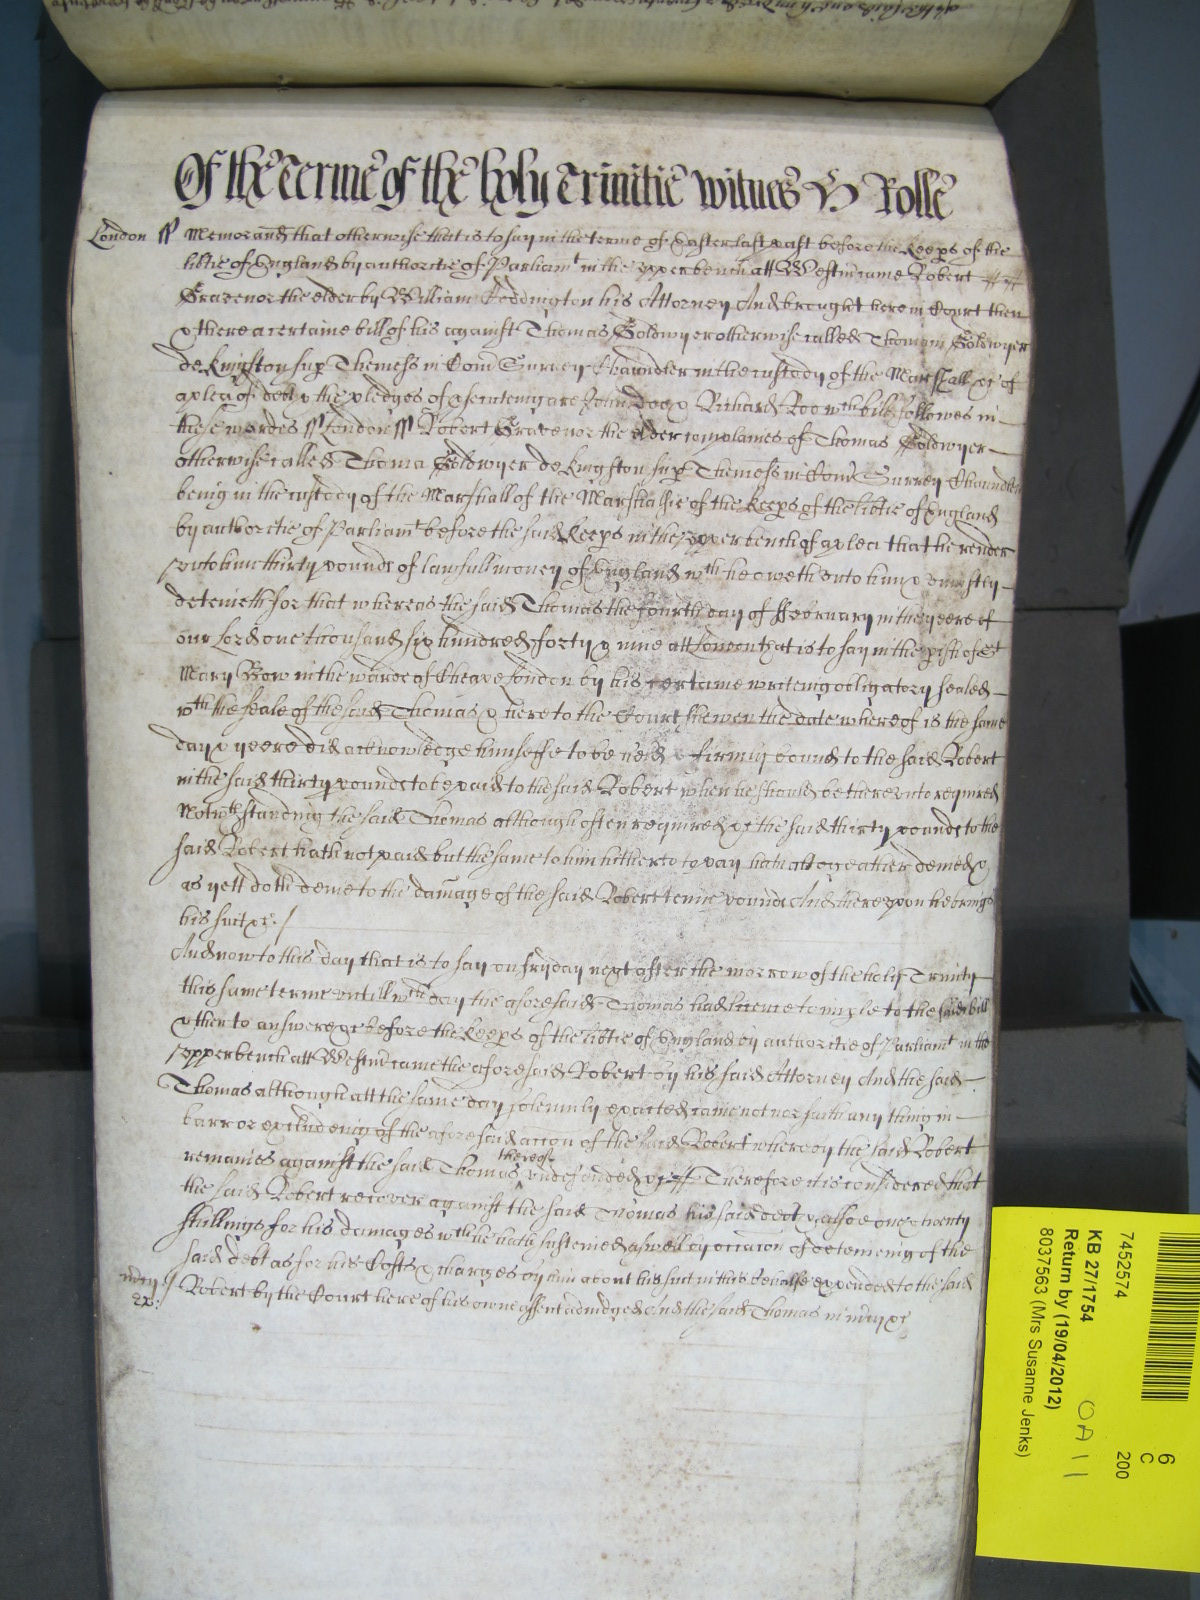 Of the Terme of the holy Trinitie Witnes H Rolle
London ss Memorand that otherwise that is to say in the terme of Easter last past before the Keeps of the
libtie of England by authoritie of Parliamt in the upper bench att Westm came Robert
Gravenor the elder by William Peddington his Attorney And brought here in Court then
& there a certaine bill of his against Thomas Goldwyer otherwise called Thomam Goldwyer
de Kingston sup Themess in Com Surrey Chaundler in the custody of the Marshall &c of
a plea of debt & the pledges of are John Doe & Richard Roo wch bill followes in
these wordes ss London ss Robert Gravenor the elder complaines of Thomas Goldwyer
otherwise called Thoma Goldwyer de Kingston sup Themess in Com Surrey Chaundler
being in the custody of the Marshall of the Marshalsie of the Keeps of the libtie of England
by authoritie of Parliamt before the said Keeps in the upper bench of a plea that he render
unto him thirty pounds of lawfull money of England wch he oweth unto him & uniustly
deteineth for that whereas the said Thomas the fourth day of February in the yeere of
our Lord one thousand six hundred forty & nine att London that is to say in the pish of St
Mary Bow in the warde of Cheape London by his certaine writeing obligatory sealed
wth the seale of the said Thomas & here to the Court shewen the date whereof is the same
day & yeere did acknowledge himselfe to be held & firmly bound to the said Robert
in the said thirty pounds to be paid to the said Robert when he should be thereunto required
Notwthstanding the said Thomas although often required &c the said thirty pounds to the
said Robert hath not paid but the same to him hitherto to pay hath altogeather denied &
as yett doth denie to the damage of the said Robert tenne pounds And thereupon he brings
his suit &c
And now to this day that is to say on fryday next after the morrow of the holy Trinity
this same terme untill wch day the aforesaid Thomas had licence to imple to the said bill
& then to answere &c before the Keeps of the libtie of England by authoritie of Parliamt in the
upper bench att Westm came the aforesaid Robert by his said Attorney And the said
Thomas although att the same day solemnly exacted came not nor saith any thing in
barr or excludeing of the aforesaid accion of the said Robert whereby the said Robert
remaines against the said Thomas thereof undefended &c Therefore it is considered that
the said Robert recover against the said Thomas his said debt & alsoe one & twenty
shillings for his damages wch he hath susteined aswell by occasion of deteineing of the
said debt as for his Costs & charges by him about his suit in this behalfe expended to the said
mcy
Robert by the Court here of his owne assent adiudged And the said Thomas in mcy &c
7452574
KB 27/1754
Return by (19/04/2012)
8037563 (Mrs Susanne Jenks)
OA 11
6
C
200